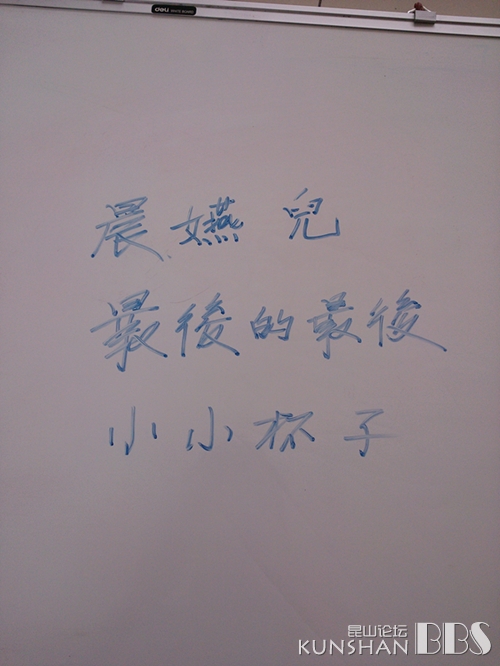 deli
晨嬿兒
最後的最後
小小杯子
昆山论坛
KUNSHAN BBS